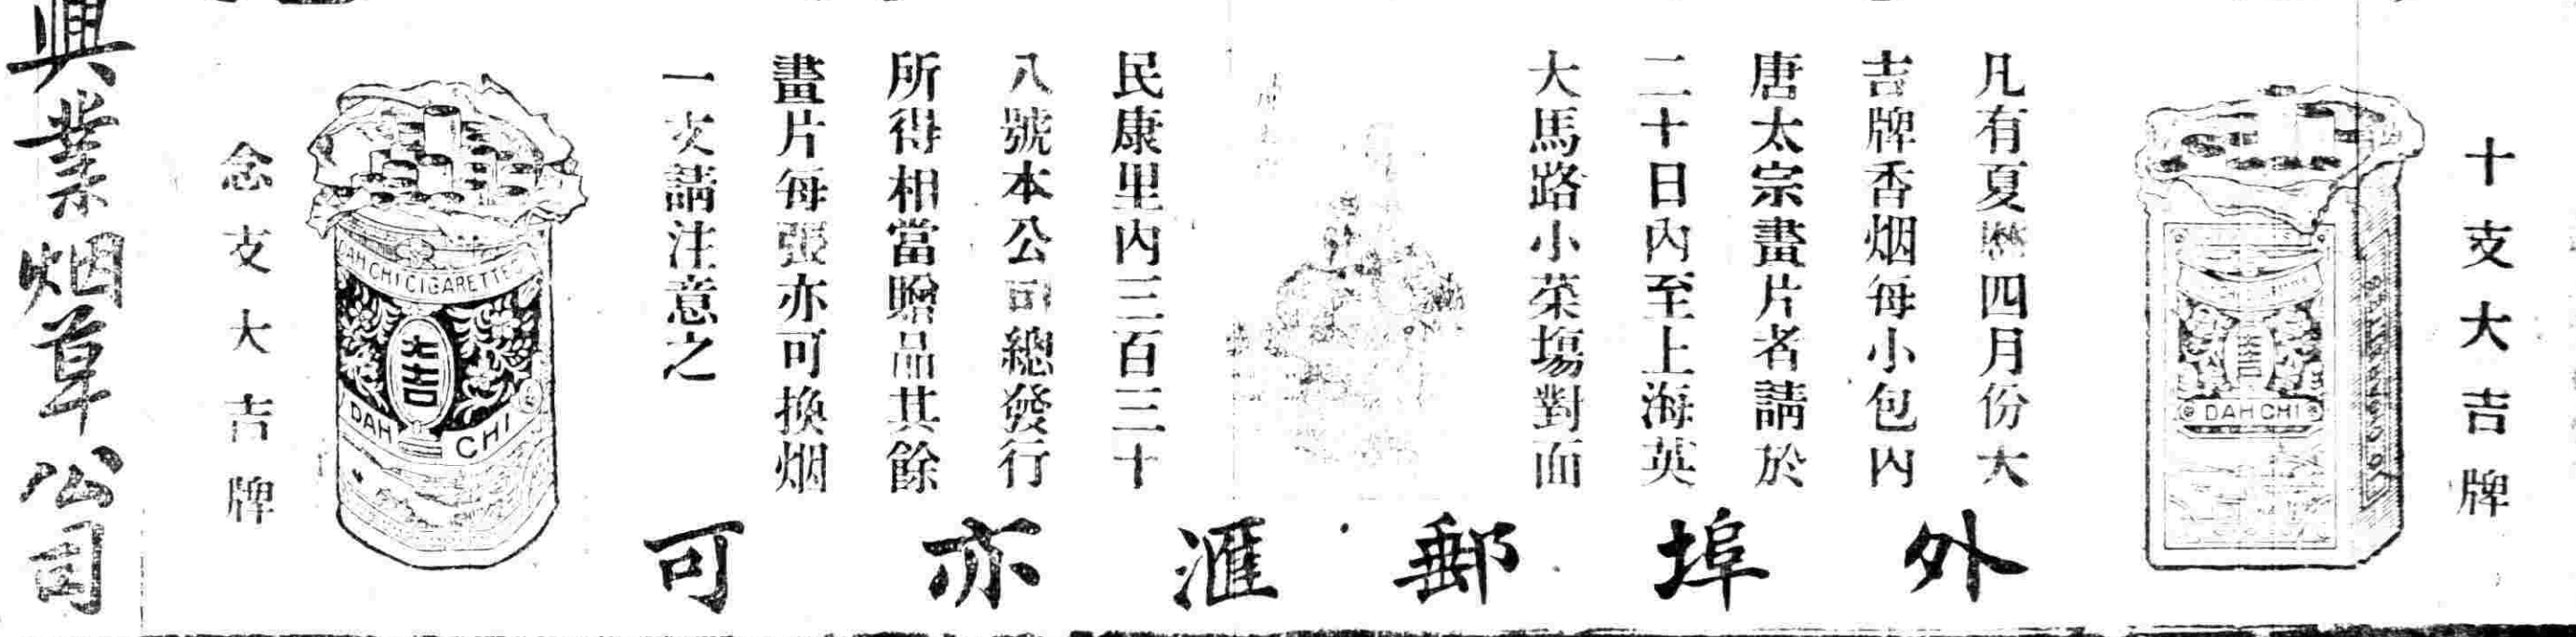 十支大吉牌
DAH CHI
凡有夏曆四月份大
吉牌香烟每小包內
唐太宗畫片者請於
二十日內至上海英
大馬路小菜塲對面
民康里內三百三十
八號本公司總發行
所得相當贈品其餘
畫片每張亦可換烟
一支請注意之
外埠郵滙亦可
DAH CHI CIGARETTES
大吉
DAH CHI
念支大吉牌
興業烟草公司